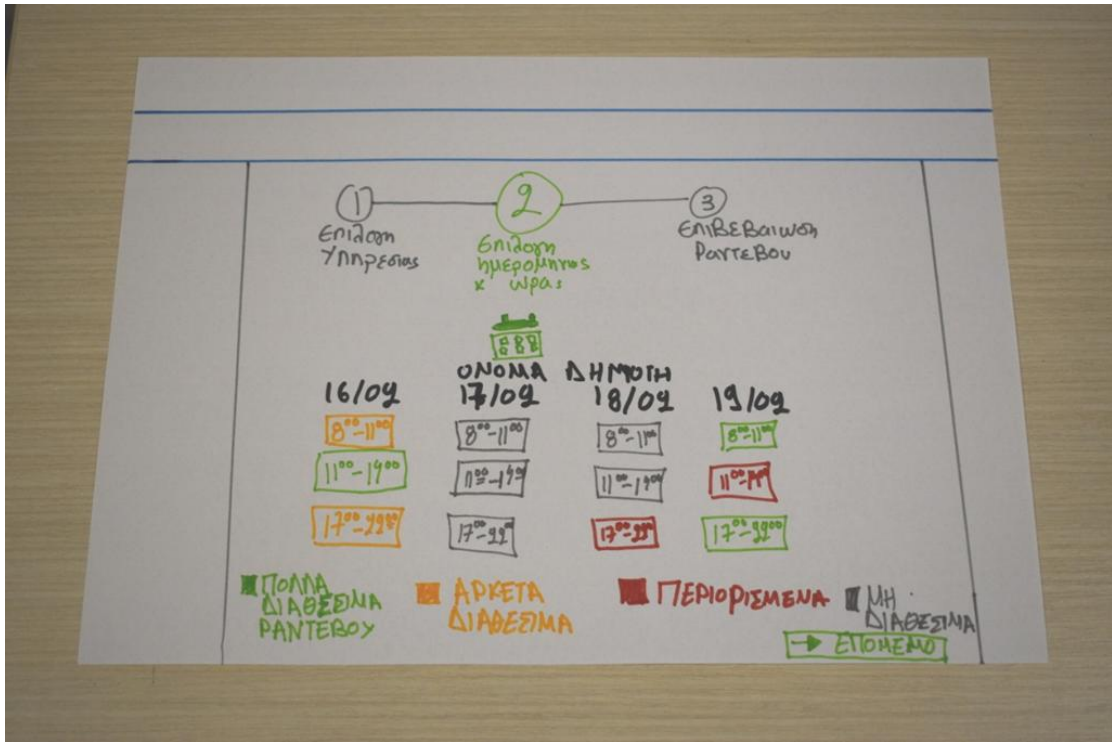 1 2 3
Επιλογη
Υπηρεσιας
Επιλογη
ημερομηνιας
κ ωρας
Επιβεβαιωση
Ραντεβου
ΟΝΟΜΑ ΔΗΜΟΤΗ
16/09 17/09 18/09 19/09
8⁰⁰-11⁰⁰ 8⁰⁰-11⁰⁰ 8⁰⁰-11⁰⁰ 8⁰⁰-11⁰⁰
11⁰⁰-14⁰⁰ 11⁰⁰-14⁰⁰ 11⁰⁰-14⁰⁰ 11⁰⁰-14⁰⁰
17⁰⁰-22⁰⁰ 17⁰⁰-22⁰⁰ 17⁰⁰-22⁰⁰ 17⁰⁰-22⁰⁰
ΠΟΛΛΑ
ΔΙΑΘΕΣΙΜΑ
ΡΑΝΤΕΒΟΥ
ΑΡΚΕΤΑ
ΔΙΑΘΕΣΙΜΑ
ΠΕΡΙΟΡΙΣΜΕΝΑ
ΜΗ
ΔΙΑΘΕΣΙΜΑ
→ ΕΠΟΜΕΝΟ